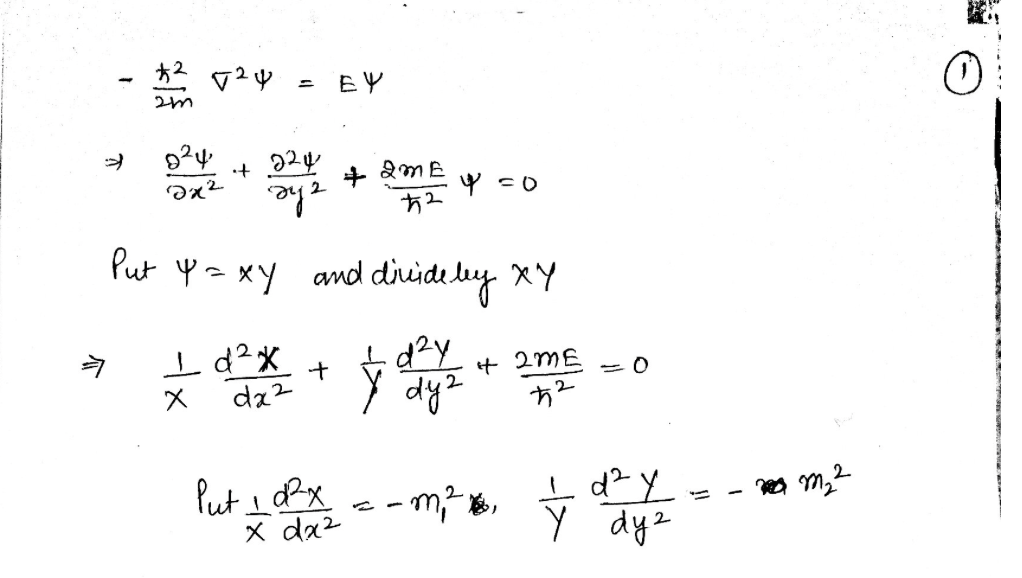 ①
- ħ²/2m ∇²ψ = Eψ
⇒ ∂²ψ/∂x² + ∂²ψ/∂y² + 2mE/ħ² ψ = 0
Put ψ = XY and divide by XY
⇒ 1/X d²X/dx² + 1/Y d²Y/dy² + 2mE/ħ² = 0
Put 1/X d²X/dx² = - m₁², 1/Y d²Y/dy² = - m₂²